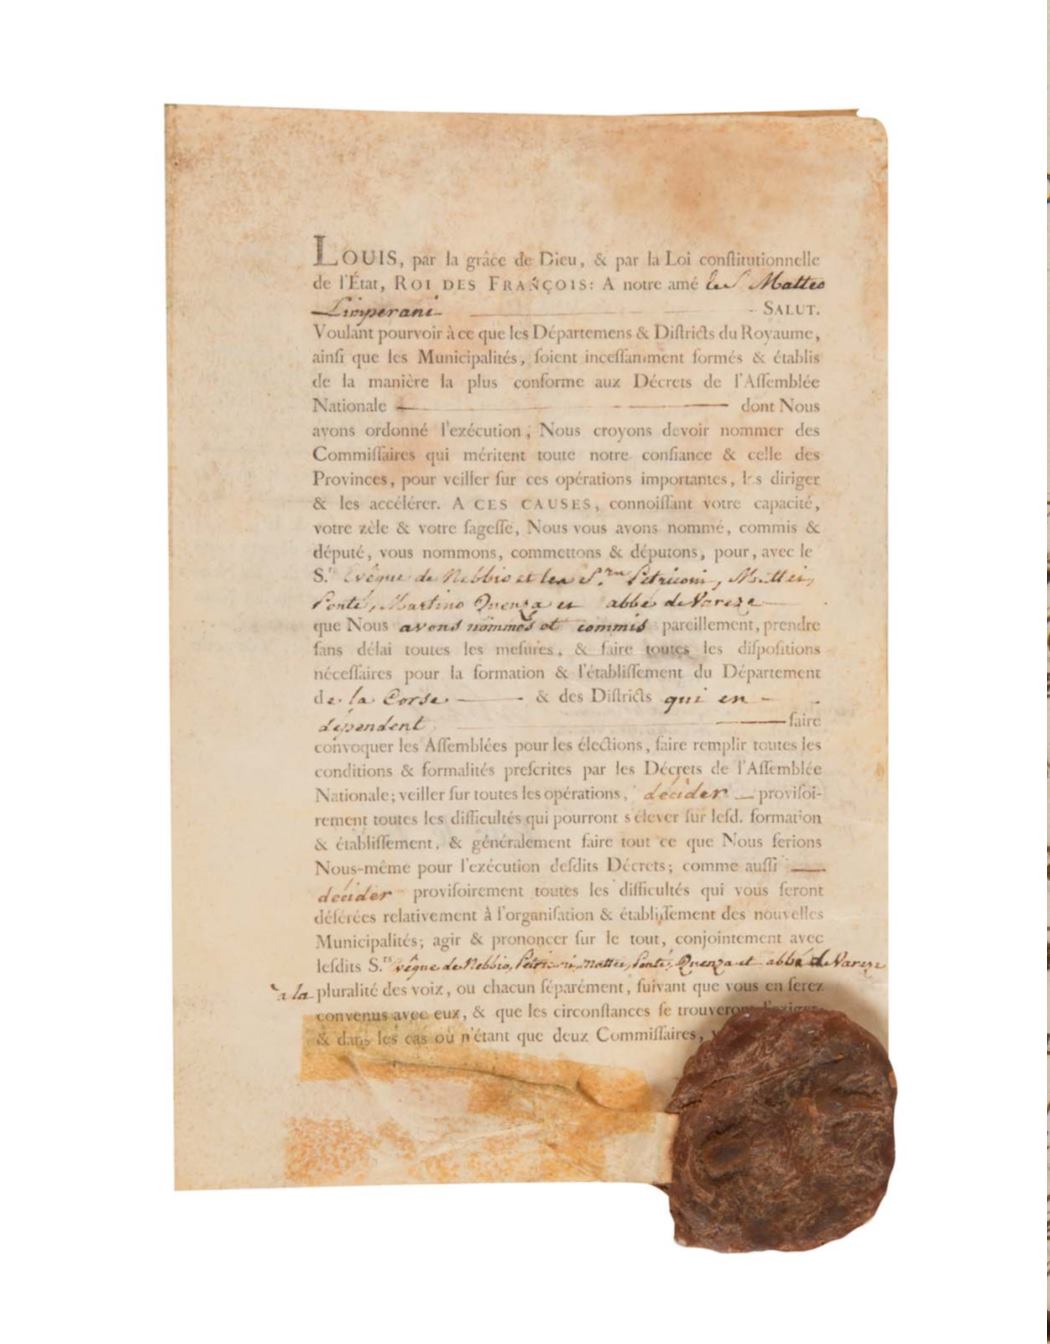 LOUIS, par la grâce de Dieu, & par la Loi conſtitutionnelle
de l'État, ROI DES FRANÇOIS: A notre amé le S. Matteo
Limperani SALUT.
Voulant pourvoir à ce que les Départemens & Diſtricts du Royaume,
ainſi que les Municipalités, ſoient inceſſamment formés & établis
de la manière la plus conforme aux Décrets de l'Aſſemblée
Nationale dont Nous
avons ordonné l'exécution, Nous croyons devoir nommer des
Commiſſaires qui méritent toute notre confiance & celle des
Provinces, pour veiller ſur ces opérations importantes, les diriger
& les accélérer. A CES CAUSES, connoiſſant votre capacité,
votre zèle & votre ſageſſe, Nous vous avons nommé, commis &
député, vous nommons, commettons & députons, pour, avec le
S.r Evêque de Nebbio et les S.rs Petriconi, Mattei,
Ponté, Martino Quenza et abbé de Vareze
que Nous avons nommés et commis pareillement, prendre
ſans délai toutes les meſures, & faire toutes les diſpoſitions
néceſſaires pour la formation & l'établiſſement du Département
de la Corse & des Diſtricts qui en
dépendent faire
convoquer les Aſſemblées pour les élections, faire remplir toutes les
conditions & formalités preſcrites par les Décrets de l'Aſſemblée
Nationale; veiller ſur toutes les opérations, décider proviſoi-
rement toutes les difficultés qui pourront s'élever ſur leſd. formation
& établiſſement, & généralement faire tout ce que Nous ferions
Nous-même pour l'exécution deſdits Décrets; comme auſſi
décider proviſoirement toutes les difficultés qui vous ſeront
déférées relativement à l'organiſation & établiſſement des nouvelles
Municipalités; agir & prononcer ſur le tout, conjointement avec
leſdits S.rs vêque de Nebbio, Petriconi, Mattei, Ponté, Quenza et abbé de Vareze
à la pluralité des voix, ou chacun ſéparément, ſuivant que vous en ſerez
convenus avec eux, & que les circonſtances ſe trouveront l'exiger
& dans les cas où n'étant que deux Commiſſaires,